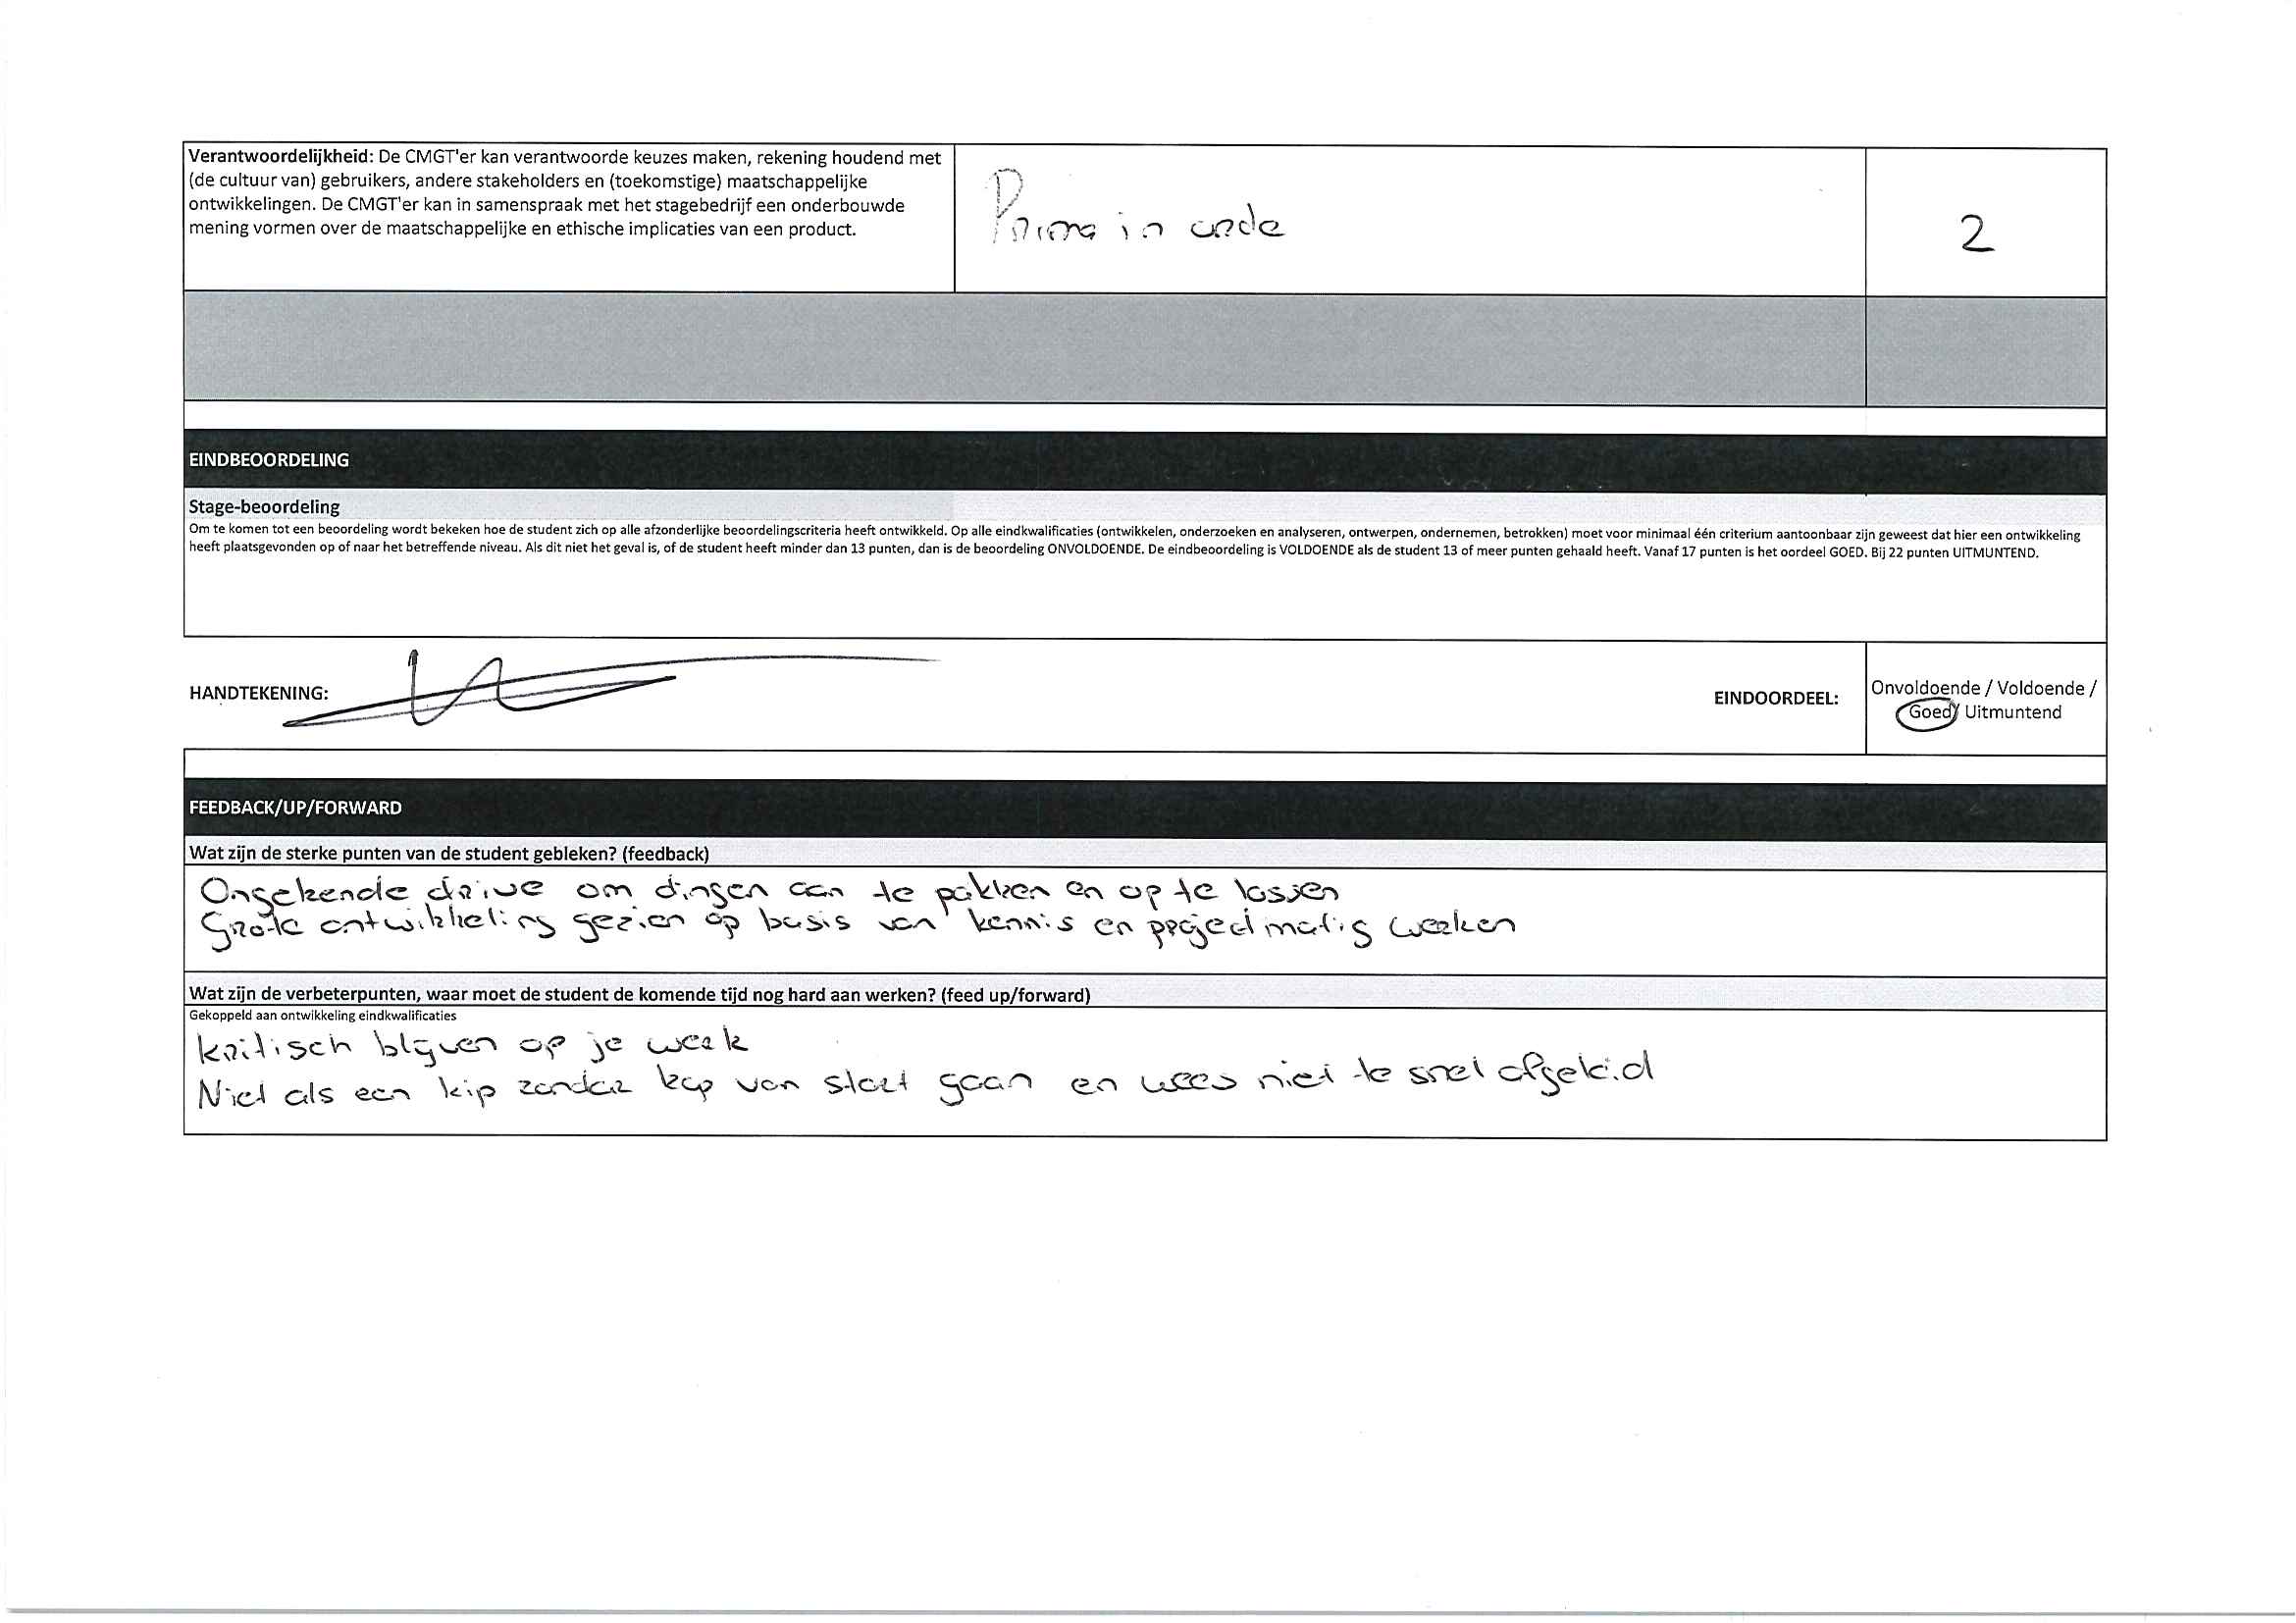 Verantwoordelijkheid: De CMGT'er kan verantwoorde keuzes maken, rekening houdend met
(de cultuur van) gebruikers, andere stakeholders en (toekomstige) maatschappelijke
ontwikkelingen. De CMGT'er kan in samenspraak met het stagebedrijf een onderbouwde
mening vormen over de maatschappelijke en ethische implicaties van een product.
Prima in orde
2
EINDBEOORDELING
Stage-beoordeling
Om te komen tot een beoordeling wordt bekeken hoe de student zich op alle afzonderlijke beoordelingscriteria heeft ontwikkeld. Op alle eindkwalificaties (ontwikkelen, onderzoeken en analyseren, ontwerpen, ondernemen, betrokken) moet voor minimaal één criterium aantoonbaar zijn geweest dat hier een ontwikkeling
heeft plaatsgevonden op of naar het betreffende niveau. Als dit niet het geval is, of de student heeft minder dan 13 punten, dan is de beoordeling ONVOLDOENDE. De eindbeoordeling is VOLDOENDE als de student 13 of meer punten gehaald heeft. Vanaf 17 punten is het oordeel GOED. Bij 22 punten UITMUNTEND.
HANDTEKENING:
EINDOORDEEL:
Onvoldoende / Voldoende /
Goed/ Uitmuntend
FEEDBACK/UP/FORWARD
Wat zijn de sterke punten van de student gebleken? (feedback)
Ongekende drive om dingen aan te pakken en op te lossen
Grote ontwikkeling gezien op basis van kennis en projectmatig werken
Wat zijn de verbeterpunten, waar moet de student de komende tijd nog hard aan werken? (feed up/forward)
Gekoppeld aan ontwikkeling eindkwalificaties
kritisch blijven op je werk
Niet als een kip zonder kop van start gaan en wees niet te snel afgeleid